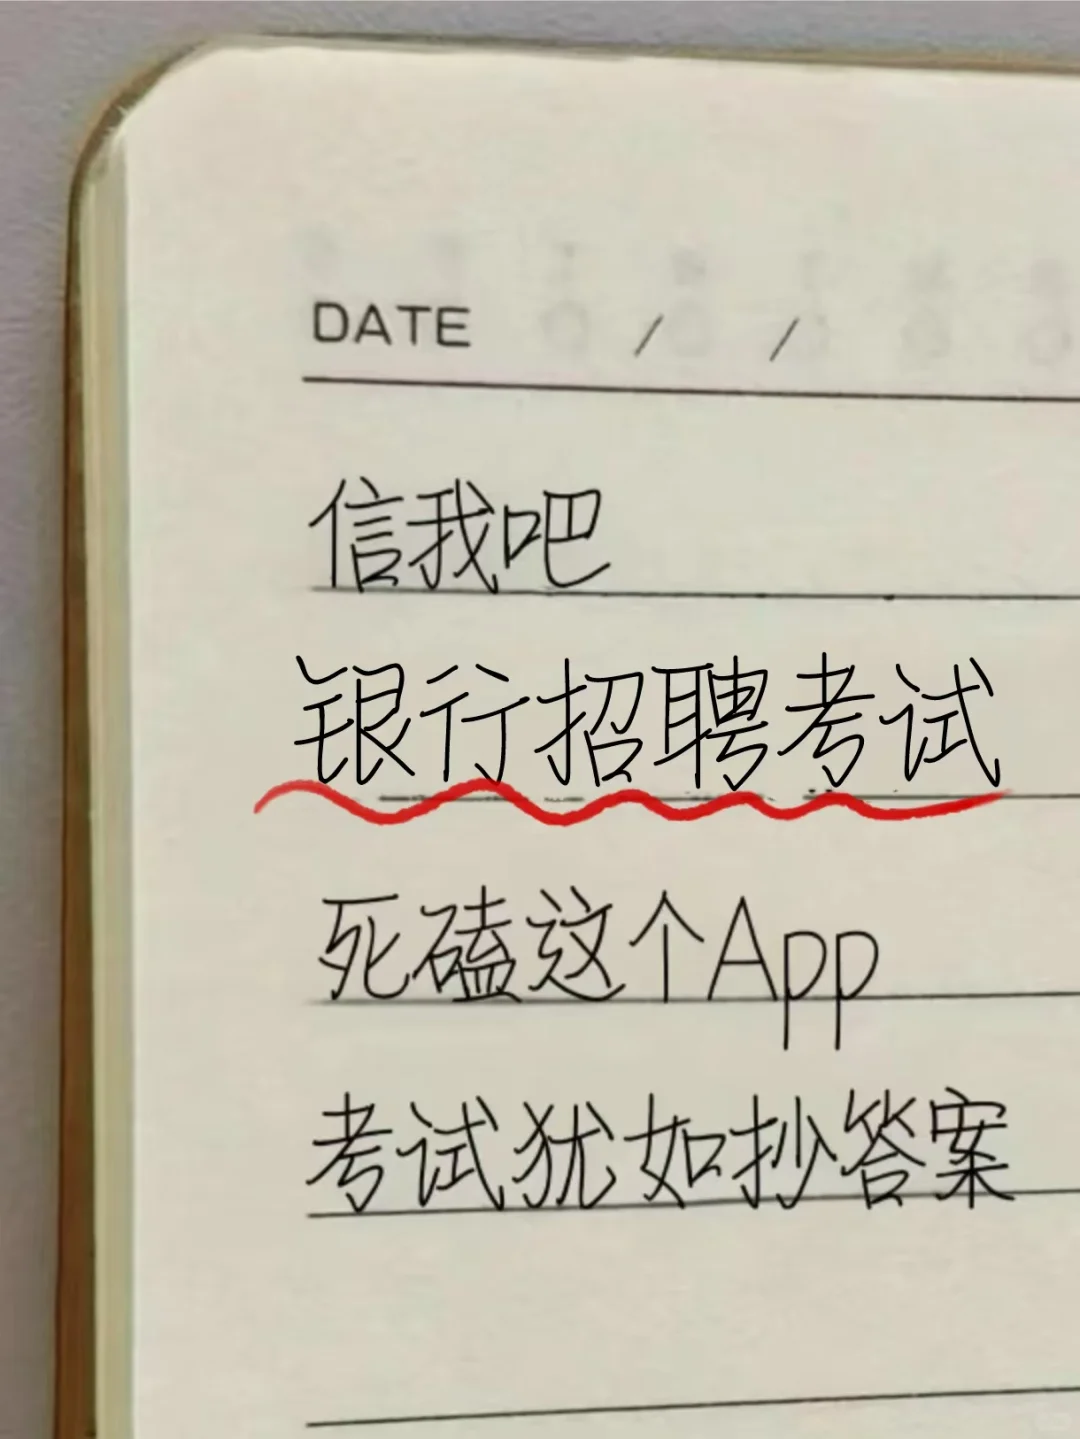 DATE / /
信我吧
银行招聘考试
死磕这个App
考试犹如抄答案